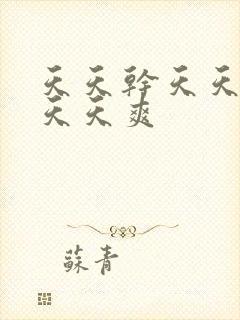 天天幹天天
天天爽
蘇青